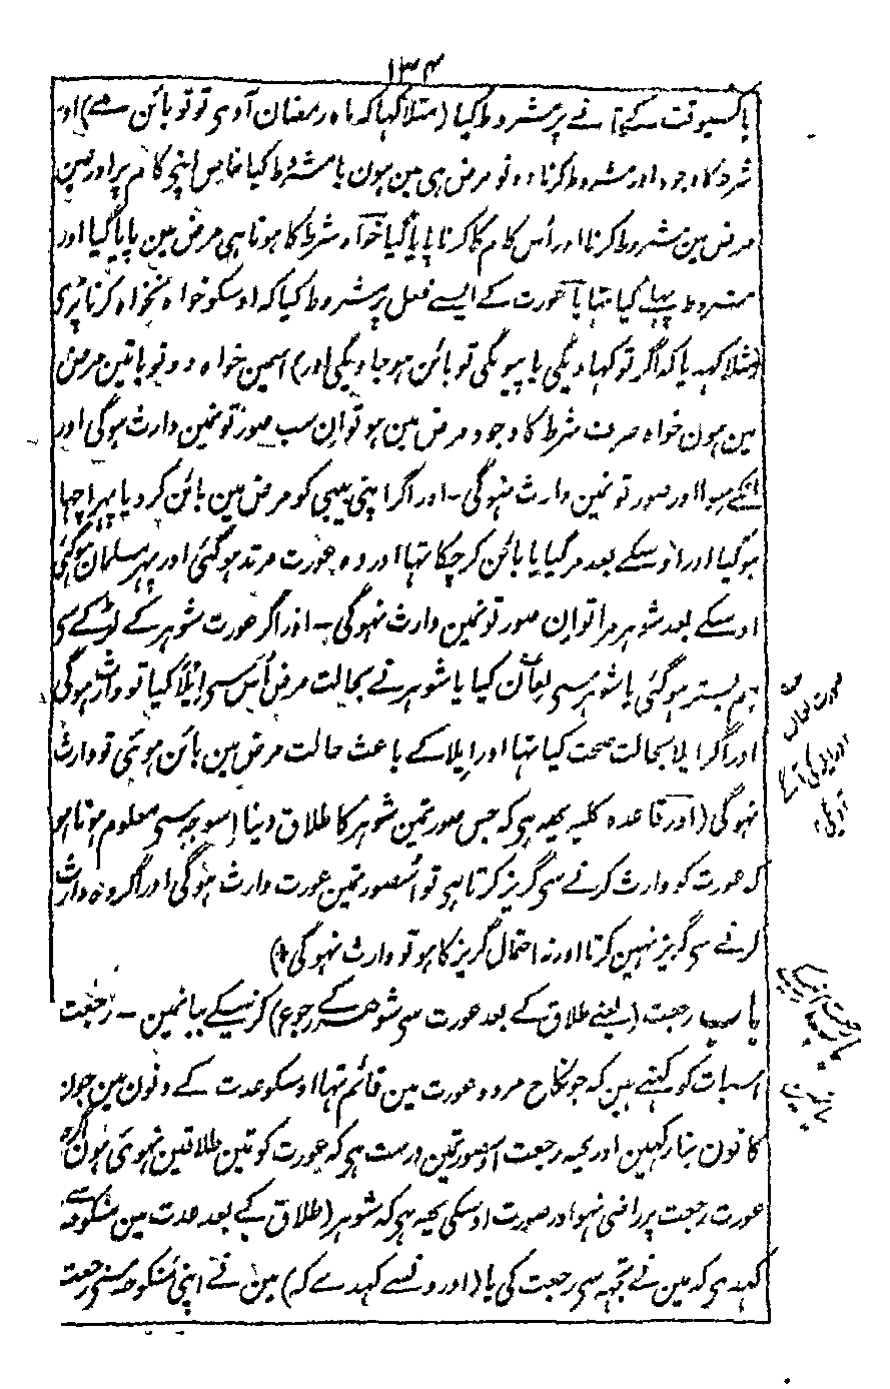 ۱۳۴
یا کسیوقت کے آنے پر مشروط کیا (مثلا کہا کہ ماہ رمضان آوی تو تو بائن ہے) اور
شرط کا وجود اور مشروط کرنا دونو مرض ہی مین ہون یا مشروط کیا خاص اپنے کام پر اور ہین
مرض مین مشروط کرنا اور اُس کام کا کرنا پایا گیا خواہ شرط کا ہونا ہی مرض مین پایا گیا اور
مشروط پہلے کیا تہا یا عورت کے ایسے فعل پر مشروط کیا کہ اوسکو خواہ نخواہ کرنا پڑی
(مثلا کہدیا کہ اگر تو کہاویگی یا پیویگی تو بائن ہوجاویگی اور) اسمین خواہ دونو باتین مرض
مین ہون خواہ صرف شرط کا وجود مرض مین ہو توان سب صورتونمین وارث ہوگی اور
انکے سوا اور صورتونمین وارث نہوگی - اور اگر اپنی بیبی کو مرض مین بائن کردیا پہر اچہا
ہوگیا اور اوسکے بعد مرگیا یا بائن کر چکا تہا اور وہ عورت مرتد ہوگئی اور پہر مسلمان ہوگئی
اوسکے بعد شوہر مرا توان صورتونمین وارث نہوگی - اور اگر عورت شوہر کے لڑکے سی
ہم بستر ہوگئی یا شوہر سی لعان کیا یا شوہر نے بحالت مرض اُس سی ایلا کیا تو وارث ہوگی
اور اگر ایلا بحالت صحت کیا تہا اور ایلا کے باعث حالت مرض مین بائن ہوئی تو وارث
نہوگی (اور قاعدہ کلیہ یہہ ہی کہ جس صورتمین شوہر کا طلاق دینا اسوجہ سی معلوم ہوتا ہو
کہ عورت کو وارث کرنے سی گریز کرتا ہی تو اُسصورتمین عورت وارث ہوگی اور اگر وہ وارث
کرنے سی گریز نہین کرتا اور نہ احتمال گریز کا ہو تو وارث نہوگی)
باب رجعت (یعنے طلاق کے بعد عورت سی شوہر کے رجوع) کرنیکے بیانمین - رجعت
اسبات کو کہتے ہین کہ جو نکاح مرد و عورت مین قائم تہا اوسکو عدت کے دنون مین جون
کا تون بنا رکہین اور یہہ رجعت اوسصورتمین درست ہی کہ عورت کو تین طلاقین نہوئی ہون اگرچہ
عورت رجعت پر راضی نہو اور صورت اوسکی یہہ ہی کہ شوہر (طلاق کے بعد عدت مین منکوحہ سے
کہدی کہ مین نے تجہہ سی رجعت کی یا (اورونسے کہدے کہ) مین نے اپنی منکوحہ سی رجعت
صورت لعان
اور ایلا کی آگے
آویگی